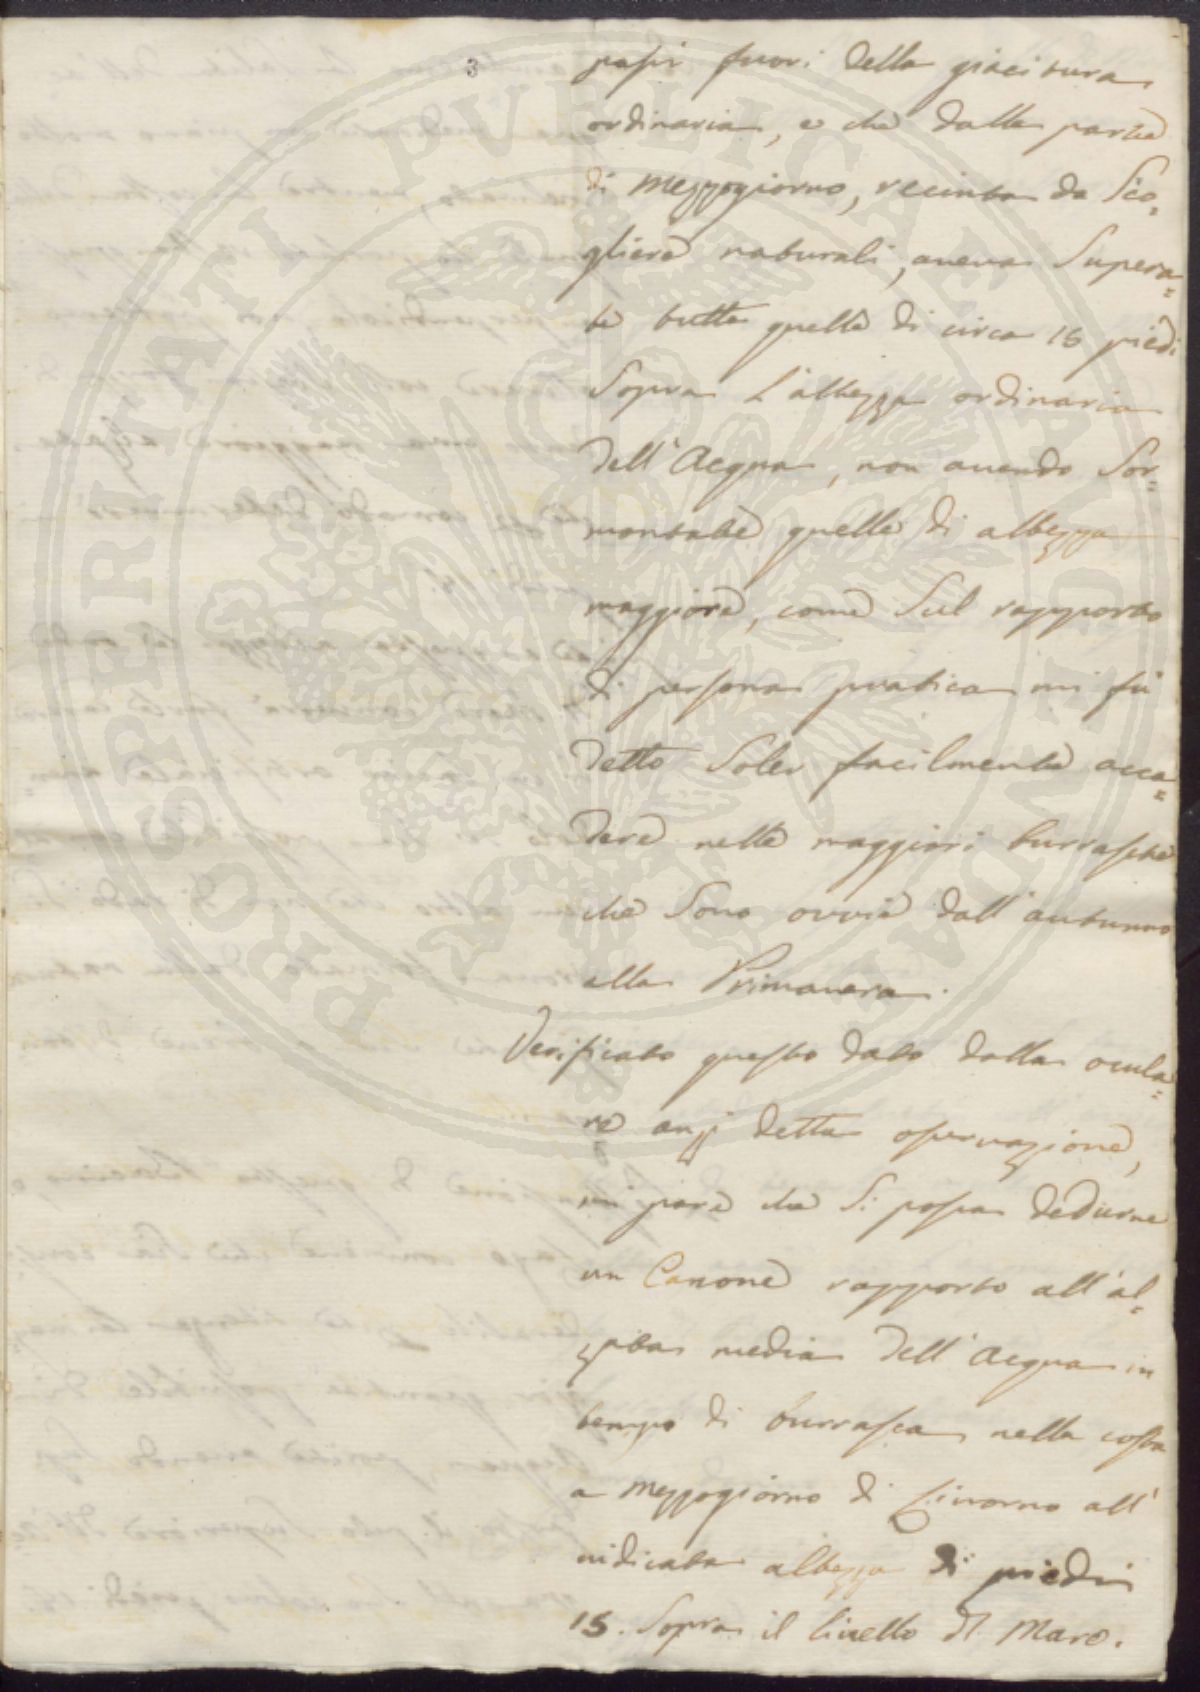 3
passi fuori della giacitura
ordinaria, e che dalla parte
di Mezzogiorno, recinta da Sco=
gliere naturali, aveva Supera=
te tutte quelle di circa 15 piedi
Sopra l'altezza ordinaria
dell'Acqua, non avendo Sor=
montate quelle di altezza
maggiore, come Sul rapporto
di persona pratica mi fù
detto Soler facilmente acca=
dere nelle maggiori burrasche
che Sono ovvie dall'autunno
alla Primavera.
Verificato questo dato dalla ocula=
re anzi detta osservazione,
mi pare che Si possa dedurne
un Canone rapporto all'al=
zata media dell'Acqua in
tempo di burrasca nella costa
a Mezzogiorno di Livorno all'
indicata altezza di piedi
15. Sopra il livello dl Mare.
PROSPERITATI PVBLICAE AVGENDAE